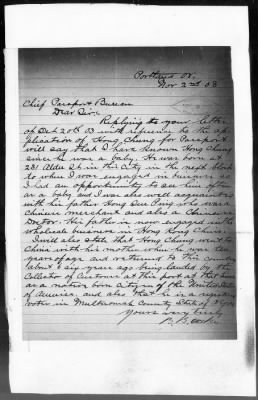 Portland Or.
Nov 2nd 03
Chief Passport Bureau
Dear Sir:
Replying to your letter
of Oct 20th 03 with reference to the ap
plication of Hong Chung for Passport
will say that I have known Hong Chung
since he was a baby. He was born at
231 Alder St in this City in the next block
to where I was engaged in business so
I had an opportunity to see him often
as a baby and I was also well acquainted
with his father Hong who was a
Chinese merchant and also a Chinese
Doctor. His father is now engaged in the
wholesale business in Hong Kong China.
I will also state that Hong Chung went to
China with his mother when he was ten
years of age and returned to this country
about 6 years ago being landed by the
Collector of Customs at this port at that time
as a native born citizen of the United States
of America and also that he is a register
voter in Multnomah County State of Oregon
Yours very truly